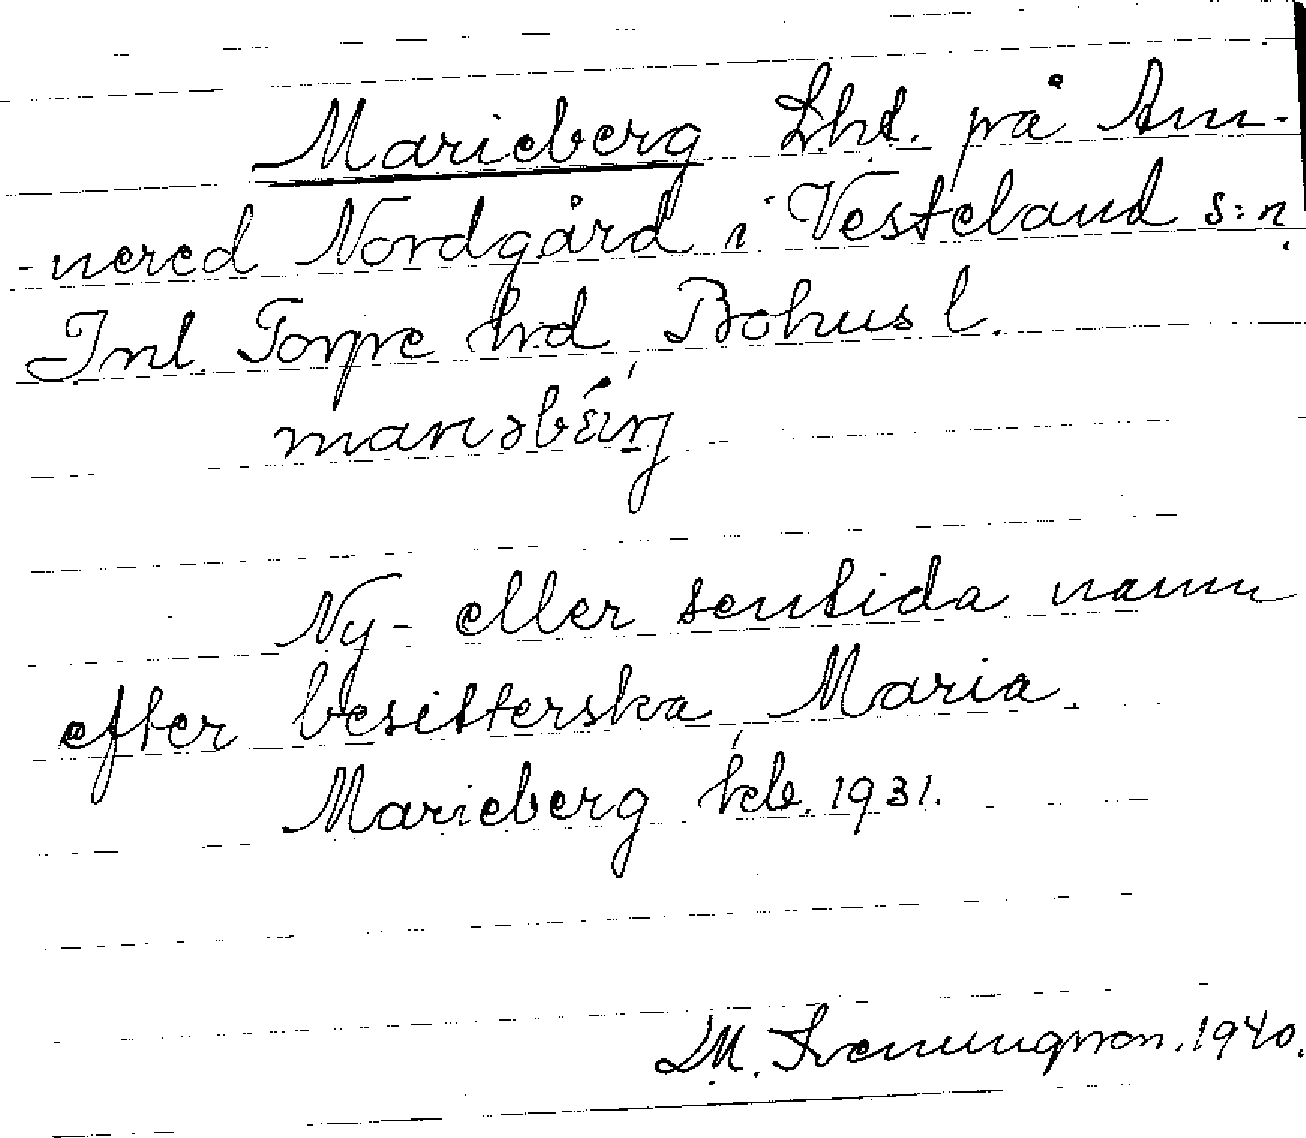 Marieberg Lht. på Ann-
-nered Nordgård i Vesteland s:n
Inl. Torpe hd, Bohus l.
Ny- eller sentida namn
efter besitterska Maria.
Marieberg kb. 1931.
M. Svenungsson. 1940.